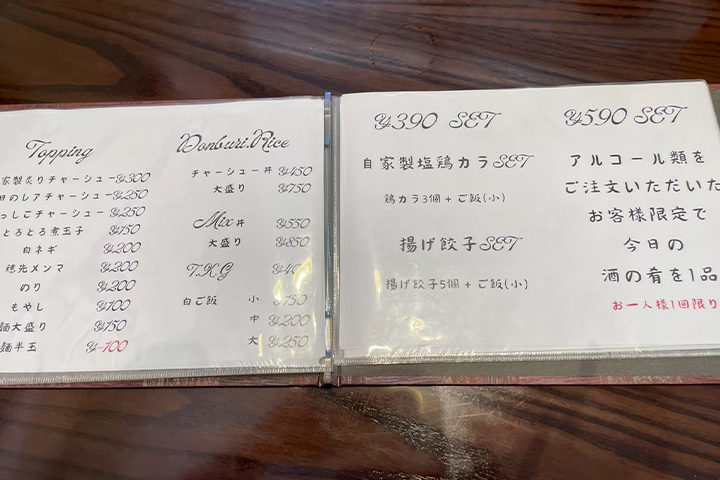 Topping
家製炙りチャーシュー ¥300
日のレアチャーシュー ¥250
っしこチャーシュー ¥250
とろとろ煮玉子 ¥150
白ネギ ¥200
穂先メンマ ¥200
のり ¥200
もやし ¥100
麺大盛り ¥150
麺半玉 ¥-100
Donburi.Rice
チャーシュー丼 ¥450
大盛り ¥750
Mix丼 ¥550
大盛り ¥850
T.K.G
白ご飯 小 ¥150
中 ¥200
大 ¥250
¥390 SET
自家製塩鶏カラSET
鶏カラ3個+ご飯(小)
揚げ餃子SET
揚げ餃子5個+ご飯(小)
¥590 SET
アルコール類を
ご注文いただいた
お客様限定で
今日の
酒の肴を1品
お一人様1回限り